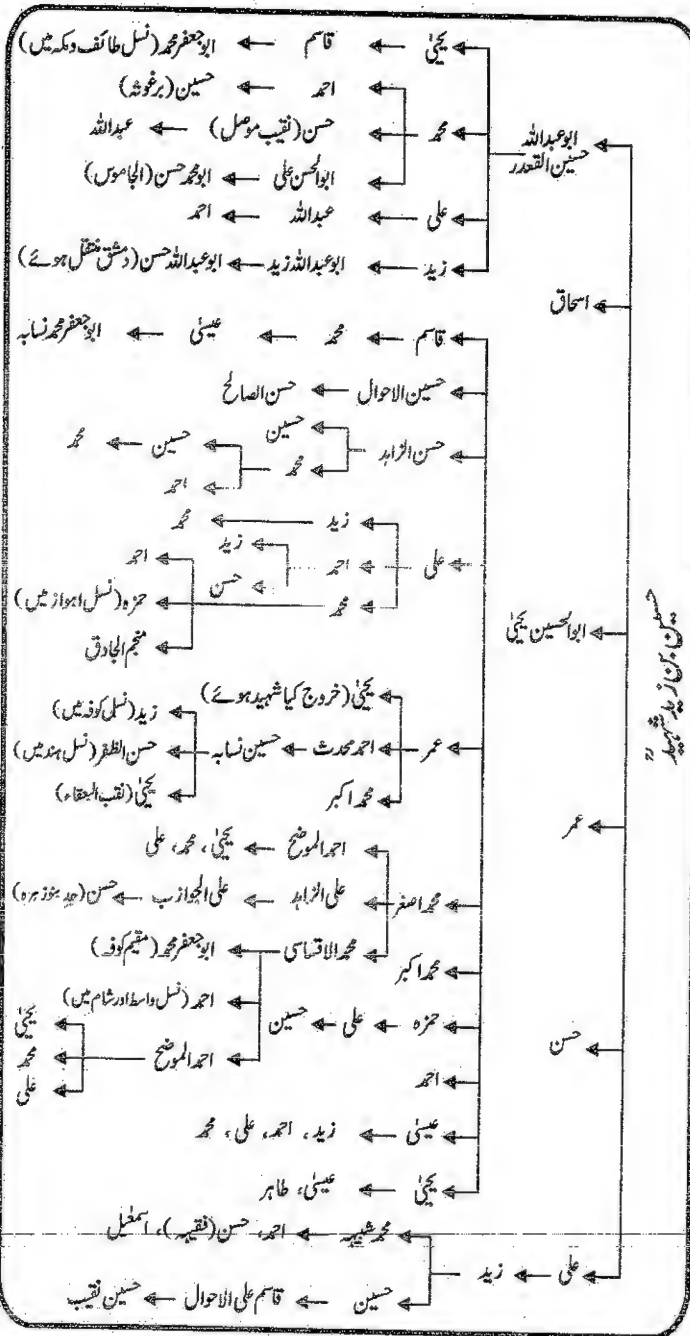 حسین بن زید شہیدؒ
ابو عبداللہ
حسین القعدر
یحییٰ ← قاسم ← ابو جعفر محمد (نسل طائف ومکہ میں)
احمد ← حسین (برغوثہ)
محمد ← حسن (نقیب موصل) ← عبداللہ
ابوالحسن علی ← ابو محمد حسن (الجاموس)
علی ← عبداللہ ← احمد
زید ← ابو عبداللہ زید ← ابو عبداللہ حسن (دمشق منتقل ہوئے)
اسحاق
ابوالحسین یحییٰ
قاسم ← محمد ← عیسیٰ ← ابو جعفر محمد نسابہ
حسین الاحوال ← حسن الصالح
حسن الزاہد ← حسین
محمد ← حسین ← محمد
احمد
علی ← زید ← محمد
احمد ← زید
حسن
محمد ← احمد
حمزہ (نسل اہواز میں)
منجم الجادق
عمر ← یحییٰ (خروج کیا شہید ہوئے)
احمد محدث ← حسین نسابہ ← زید (نسل کوفہ میں)
حسن الظفر (نسل ہند میں)
یحییٰ (نقب العقاء)
محمد اکبر
محمد اصغر ← احمد الموضح ← یحییٰ، محمد، علی
علی الزاہد ← علی الجوازب ← حسن (جد بنو زہرہ)
محمد الاقساسی ← ابو جعفر محمد (مقیم کوفہ)
احمد (نسل واسط اور شام میں)
احمد الموضح ← یحییٰ
محمد
علی
محمد اکبر
حمزہ ← علی ← حسین
احمد
عیسیٰ ← زید، احمد، علی، محمد
یحییٰ ← عیسیٰ، طاہر
عمر
حسن
علی ← زید ← محمد شبیہہ ← احمد، حسن (فقیہہ)، اسمٰعیل
حسین ← قاسم علی الاحوال ← حسین نقیب